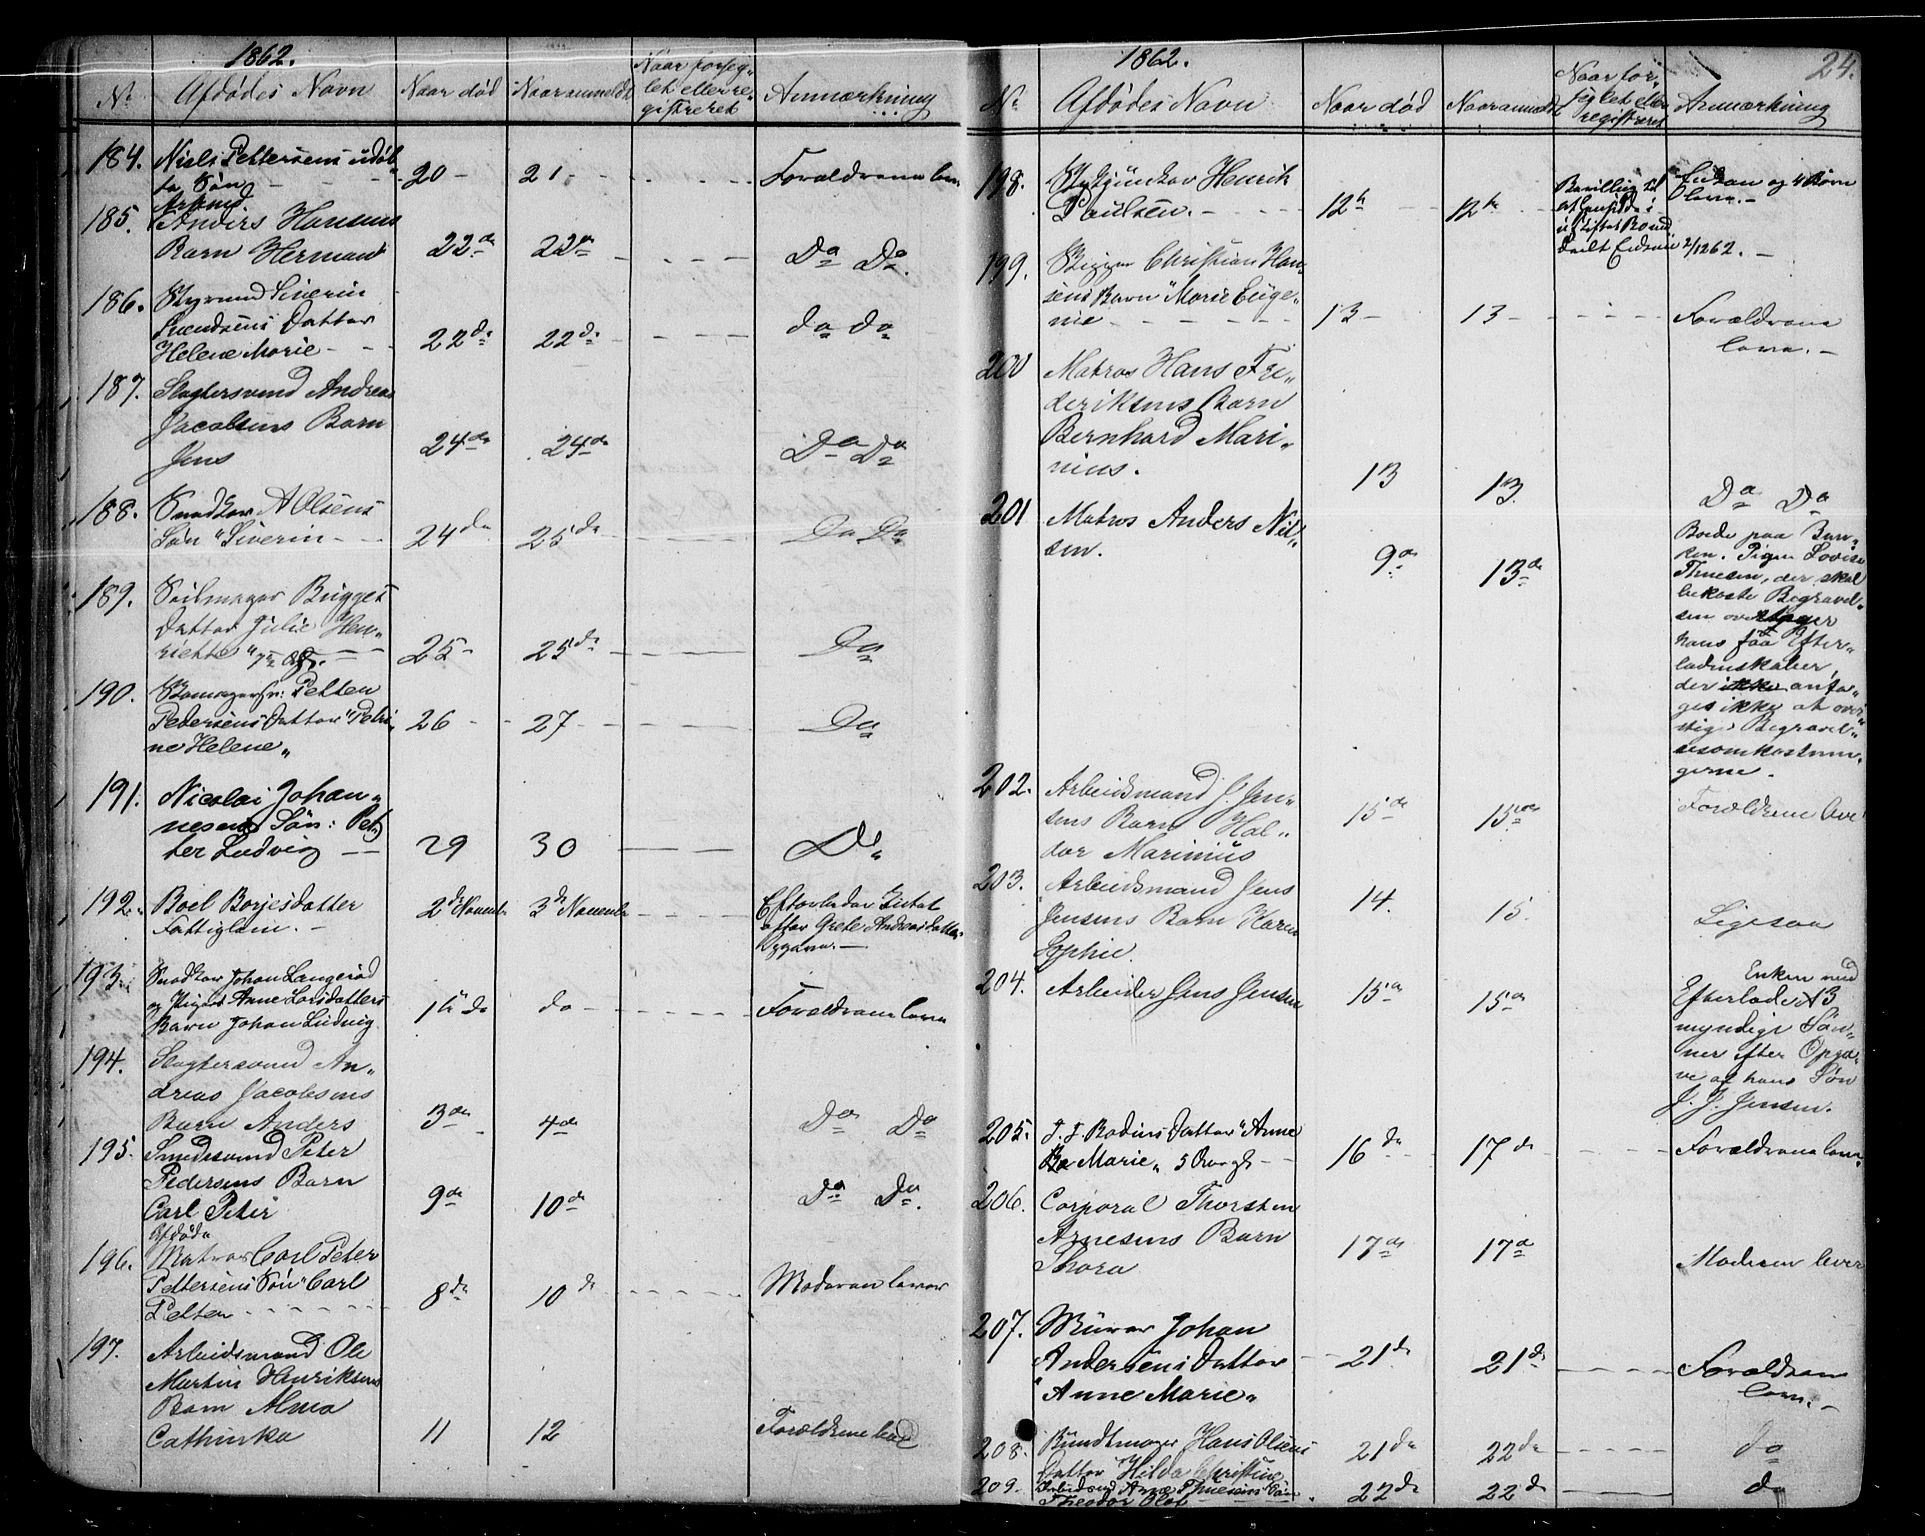 1862.
No Afdødes Navn Naar død Naar anmeldt Naar forseg-
let eller re-
gistreret Anmærkning
184. Niels Pettersens udøb-
te Søn 20 21 Forældrene leve
185. Arbmd
Anders Hansens
Barn Herman 22de 22de Do Do.
186. Styrmd Siverin
Svendsens Datter
Helene Marie 22de 22de do do
187. Slagtersvend Andreas
Jacobsens Barn
Jens 24de 24de Do Do
188. Snedker A Olsens
Søn "Siverin 24de 25de Do Do
189. Seilmager Brygges
Datter Julie Hen-
riette" 25 25de Do
190. Petter
Pedersens Datter "Petri-
ne Helene" 26 27 Do
191. Nicolai Johan-
nesens Søn: Pet-
ter Ludvig 29 30 Do
192. Boel Borjesdatter
Fattiglem. 2de Novembr 3de Novembr Efterlader Intet
efter Grete Andreasdatters
Opgave.
193. Snedker Johan Langerød
og Pigen Anne Larsdatters
Barn Johan Ludvig 1ste do do Forældrene leve
194. Slagtersvend An-
dreas Jacobsens
Barn Anders 3de 4de Do Do
195. Smedesvend Peter
Pedersens Barn
Carl Peter 9de 10de Do Do.
196. Afdøde
Matros Carl Peter
Pettersens Søn "Carl
Petter 8de 10de Moderen lever
197. Arbeidsmand Ole
Martin Henriksens
Barn Alma
Cathinka 11 12 Forældrene leve
24.
1862.
No Afdødes Navn Naar død Naar anmeldt Naar for-
seglet eller
registreret Anmærkning
198. Henrik
Paulsen. 12te 12te Bevilling til
at hensidde i
uskiftet Boe
Enken og 4 Børn
leve.
199. Bygger Christian Han-
sens Barn "Marie Euge-
nie 13 13 Forældrene
leve.
200 Matros Hans Fre-
deriksens Barn
Bernhard Mari-
nius. 13 13 Do Do
201 Matros Anders Niel-
sen. 9de 13de Boede paa
Pigen Lovise
Thuesen, der skal
bekoste Begravel-
sen
hans faa Efter-
ladenskaber,
der anta-
ges ikke at over-
stige Begravel-
sesomkostnin-
gerne.
202. Arbeidsmand J. Jen-
sens Barn Hal-
dor Marinius 15de 15de Forældrene leve
203. Arbeidsmand Jens
Jensens Barn Karen
Sophie. 14. 15. Ligesaa
204. Arbeider Jens Jensen 15de 15de Enken med
Efterladte 3
myndige Søn-
ner efter Opga-
ve af hans Søn
J. J. Jensen.
205. J. J. Bodins Datter "Anne
Marie" 16de 17de Forældrene leve
206. Corporal Thorsten
Arnesens Barn
Thora 17de 17de Moderen lever
207. Murer Johan
Andersens Datter
"Anne Marie" 21de 21de Forældrene
leve.
208. Bundtmager Hans Olsens
Datter Hilda Christine 21de 22de do
209. Arbeidsmd Arne Thuesens Søn
Theodor Olaf 22de 22de do